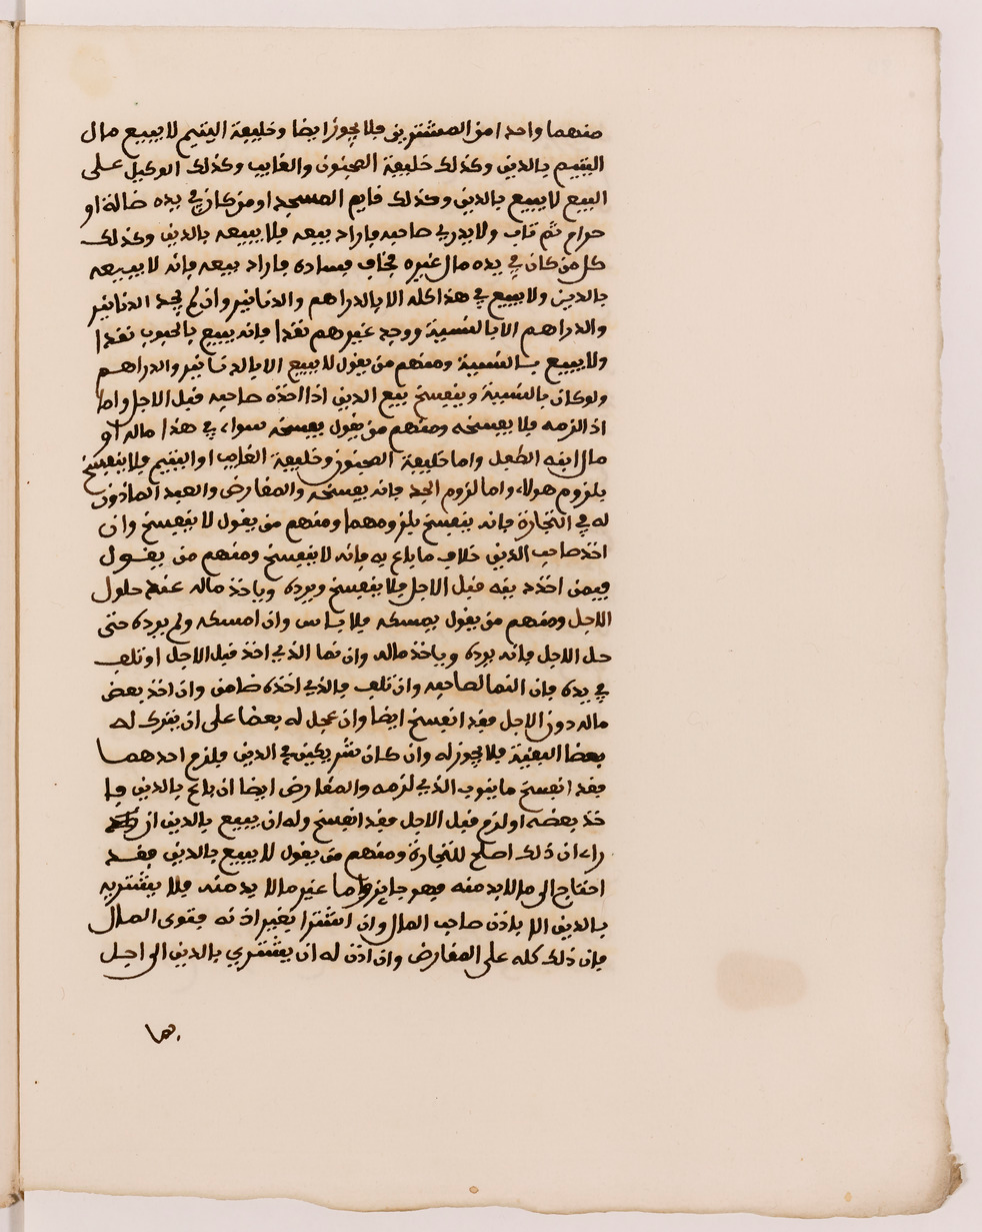 منهما واحدا من المشتريين فلا يجوز ايضا وخليفة اليتيم لا يبيع مال
اليتيم بالدين وكذلك خليفة المجنون والغايب وكذلك الوكيل على
البيع لا يبيع بالدين وكذلك قايم المسجد او من كان في يده ضالة او
حرام ثم تاب ولا يدري صاحبه فاراد بيعه فلا يبيعه بالدين وكذلك
كل من كان في يده مال غيره فخاف فساده فاراد بيعه فانه لا يبيعه
بالدين ولا يبيع في هذا كله الا بالدراهم والدنانير وان لم يجد الدنانير
والدراهم الا بالنسيئة ووجد غيرهم نقدا فانه يبيع بالحبوب نقدا
ولا يبيع بالنسية ومنهم من يقول لا يبيع الا بالدنانير والدراهم
ولو كان بالنسية وينفسخ بيع الدين اذا اخذه صاحبه قبل الاجل واما
اذ الزمه فلا يفسخه ومنهم من يقول يفسخه سواء في هذا ماله او
مال ابنه الطفل واما خليفة المجنون وخليفة الغايب او اليتيم فلا ينفسخ
بلزوم هولاء واما لزوم الجد فانه يفسخه والمقارض والعبد الماذون
له في التجارة فانه ينفسخ بلزومهما ومنهم من يقول لا ينفسخ وان
اخذ صاحب الدين خلاف ما باع به فانه لا ينفسخ ومنهم من يقول
فيمن اخذ دينه قبل الاجل فلا ينفسخ ويرده وياخذ ماله عند حلول
الاجل ومنهم من يقول يمسكه فلا باس وان امسكه ولم يرده حتى
حل الاجل فانه يرده وياخذ ماله وان نما الذي اخذ قبل الاجل او تلف
في يده فان النما لصاحبه وان تلف فالذي اخذه ضامن وان اخذ بعض
ماله دون الاجل فقد انفسخ ايضا وان عجل له بعضا على ان يترك له
بعضا البقية فلا يجوز له وان كان شريكين في الدين فلزم احدهما
فقد انفسخ ما ينوب الذي لزمه والمقارض ايضا ان باع بالدين فا
خذ بعضه او لزم قبل الاجل فقد انفسخ وله ان يبيع بالدين ان
راء ان ذلك اصلح للتجارة ومنهم من يقول لا يبيع بالدين فقد
احتاج الى ما لا بد منه فهو جايز واما غير ما لا بد منه فلا يشتريه
بالدين الا باذن صاحب المال وان اشترا بغير اذنه فتوى المال
فان ذلك كله على المقارض وان اذن له ان يشتري بالدين الى اجل